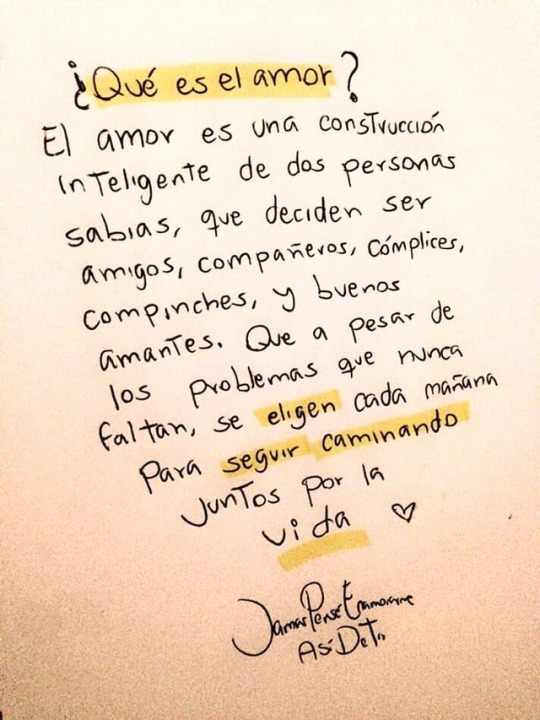 ¿Qué es el amor?
El amor es una construcción
inteligente de dos personas
sabias, que deciden ser
amigos, compañeros, cómplices,
compinches, y buenos
amantes. Que a pesar de
los problemas que nunca
faltan, se eligen cada mañana
para seguir caminando
juntos por la
vida ♡
Jamas Pensé Enamorarme
Asi De Ti